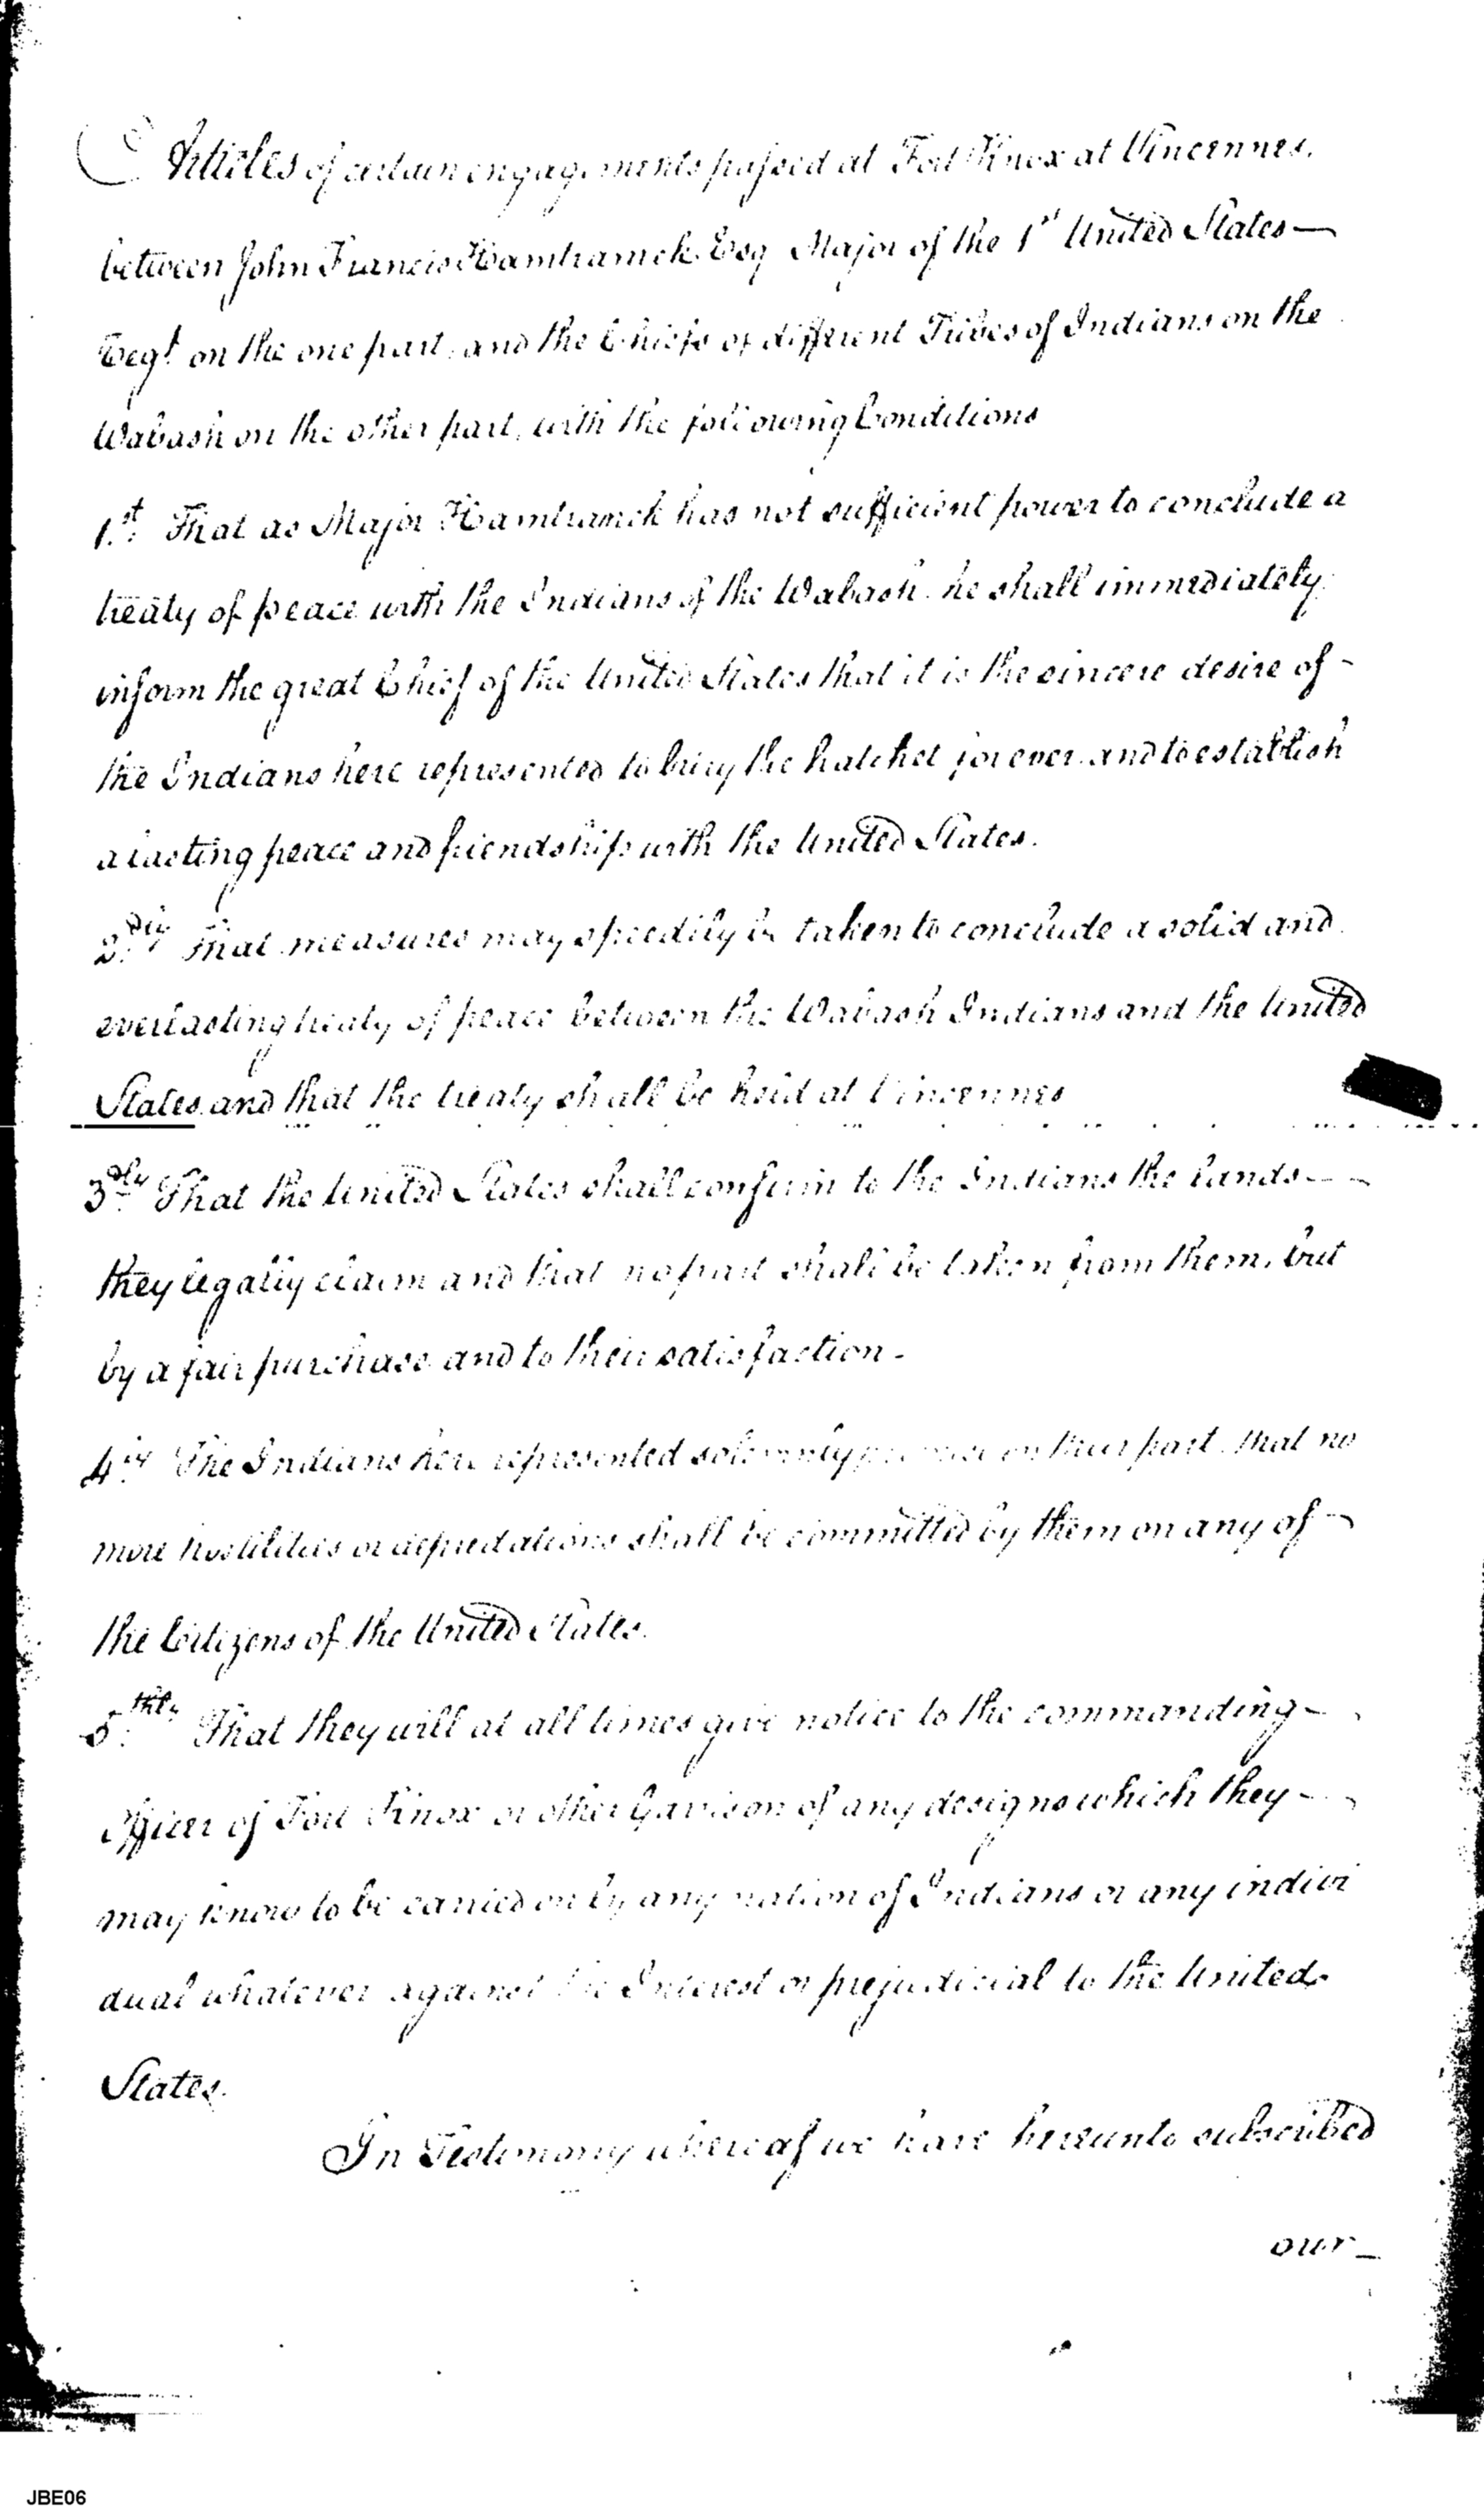 Articles of certain engagements passed at Fort Knox at Vincennes.
between John Francis Hamtramck Esq Major of the 1st United States—
Regt. on the one part, and the Chiefs of different Tribes of Indians on the
Wabash on the other part, with the following Conditions
1.st That as Major Hamtramck has not sufficient power to conclude a
treaty of peace with the Indians of the Wabash. he shall immediately
inform the great Chief of the United States that it is the sincere desire of -
the Indians here represented to bury the hatchet forever. and to establish
a lasting peace and friendship with the United States.
2.dly That measures may speedily be taken to conclude a solid and
everlasting treaty of peace between the Wabash Indians and the United
States and that the treaty shall be held at Vincennes
3dly That the United States shall confirm to the Indians the lands - -
they legally claim and that no part shall be taken from them, but
by a fair purchase and to their satisfaction -
4.ly The Indians here represented solemnly promise on their part. that no
more hostilities or depredations shall be committed by them on any of -
the Citizens of the United States.
5.thly That they will at all times give notice to the commanding -
officer of Fort Knox or other Garrison of any designs which they -
may know to be carried on by any nation of Indians or any indivi
dual whatever against the Interest or prejudicial to the United
States.
In Testimony whereof we have hereunto subscribed
our -
JBE06